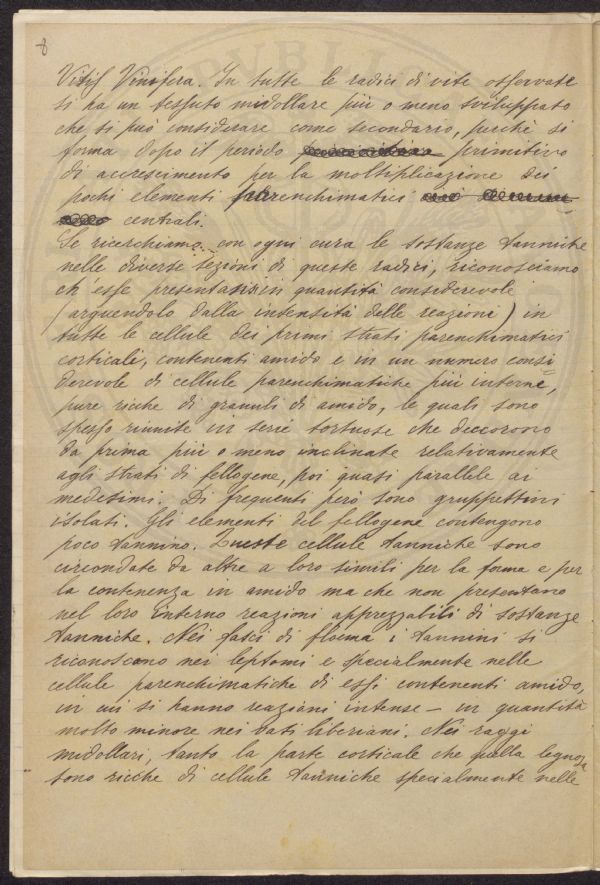 8
Vitis Vinifera. In tutte le radici di vite osservate
si ha un tessuto midollare più o meno sviluppato
che si può considerare come secondario, perchè si
forma dopo il periodo primitivo
di accrescimento per la moltiplicazione dei
pochi elementi parenchimatici
centrali.
Se ricerchiamo con ogni cura le sostanze tanniche
nelle diverse sezioni di queste radici, riconosciamo
ch'esse presentansi in quantità considerevole
(arguendolo dalla intensità delle reazioni) in
tutte le cellule dei primi strati parenchimatici
corticali, contenenti amido e in un numero consi=
derevole di cellule parenchimatiche più interne,
pure ricche di granuli di amido, le quali sono
spesso riunite in serie tortuose che decorrono
da prima più o meno inclinate relativamente
agli strati di fellogene, poi quasi parallele ai
medesimi. Di frequenti però sono gruppettini
isolati. Gli elementi del fellogene contengono
poco tannino. Queste cellule tanniche sono
circondate da altre a loro simili per la forma e per
la contenenza in amido ma che non presentano
nel loro interno reazioni apprezzabili di sostanze
tanniche. Nei fasci di floema i tannini si
riconoscono nei leptomi e specialmente nelle
cellule parenchimatiche di essi contenenti amido,
in cui si hanno reazioni intense – in quantità
molto minore nei vasi liberiani. Nei raggi
midollari, tanto la parte corticale che quella legnosa
sono ricche di cellule tanniche specialmente nelle